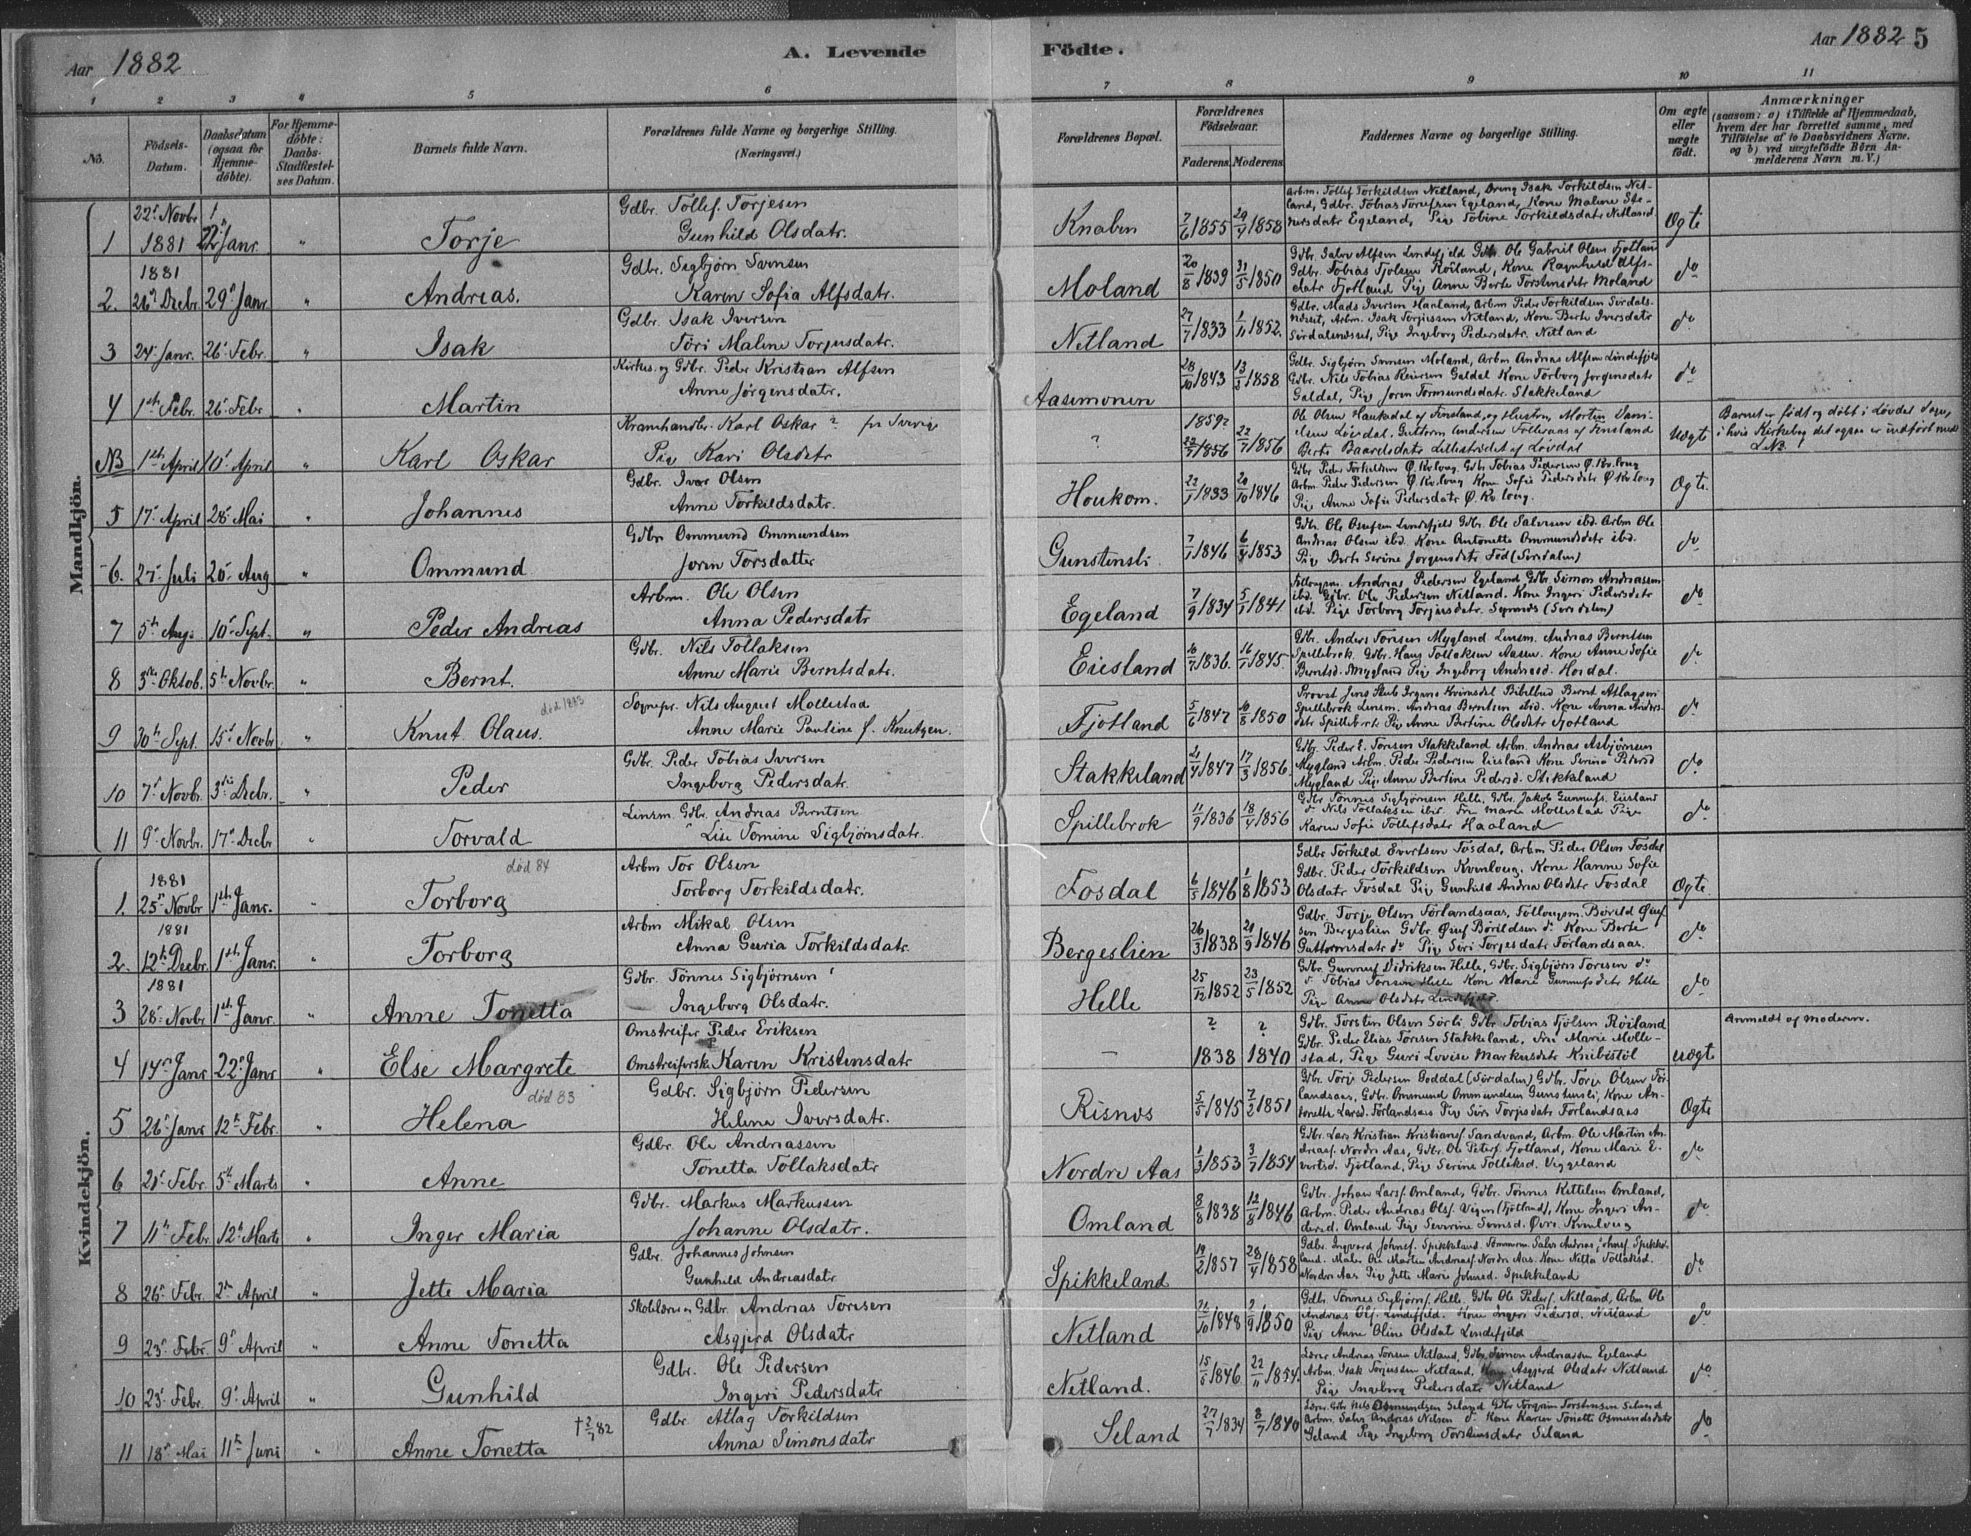 Aar 1882
A. Levende Födte.
Aar 1882 5
1 2 3 4 5 6 7 8 9 10 11
No.
Födsels-Datum.
Daabsdatum (ogsaa for Hjemme-döbte).
For Hjemme-döbte: Daabs-Stadfæstel-ses Datum.
Barnets fulde Navn.
Forældrenes fulde Navne og borgerlige Stilling. (Næringsvei.)
Forældrenes Bopæl.
Forældrenes Födselsaar.
Faderens. Moderens.
Faddernes Navne og borgerlige Stilling.
Om ægte eller uægte födt.
Anmærkninger (saasom: a) i Tilfælde af Hjemmedaab, hvem der har forrettet samme, med Tilföielse af to Daabsvidners Navne, og b) ved uægtefödte Börn Anmelderens Navn m. V.)
Mandkjön.
1 22 Novbr 1881 22 Janr. " Torje Gdbr. Tollef Torjesen
Gunhild Olsdatr. Knaben 7/6 1855 29/4 1858 Ægte
Arbm. Tollef Torkildsen Netland, Dreng Isak Torkildsen Netland, Gdbr. Tobias Egeland, Kone Malene Egeland, Pige Tobine Torkildsdatr Netland
2. 1881 Decbr. 29 Janr. " Andreas. Gdbr. Sigbjørn Svensen
Karen Sofia Alfsdatr. Moland 20/8 1839 31/5 1850 do
Gdbr. Salve Alfsen Lindefjeld Gdbr. Ole Gabriel Olsen Fjotland
Gdbr. Tobias Tjølsen Röiland, Kone Ragnhild Alfsdatr Fjotland Pige Anne Berte Torstensdatr Moland
3 24 Janr. 26 Febr. " Isak Gdbr. Isak Iversen
Töri Malene Torjusdatr. Netland 27/7 1833 1/11 1852. do
Gdbr. Mads Iversen Haaland, Arbm Peder Torkildsen
Arbm. Isak Torjussen Netland, Kone Berte Iversdatr
Pige Ingeborg Pedersdatr. Netland
4 1ste Febr. 26 Febr. " Martin Kirkes. og Gdbr. Peder Kristian Alfsen
Anne Jørgensdatr. Aasemonen 28/10 1843 13/3 1858 do
Gdbr. Sigbjørn Svensen Moland, Arbm Andreas Alfsen Lindefjeld
Gdbr. Nils Tobias Reiersen Galdal Kone Torborg Jørgensdatr
Galdal, Pige Joren Tormundsdatr. Stakkeland
NB 1ste April 10 April " Karl Oskar Kramhandler Karl Oskar ? fra Sverige
Pige Kari Olsdatr " 1859? 22/7 1856 22/7 1856 Uægte
Ole Olsen Haukedal af Finsland, og Hustru, Morten
Løvdal, Guttorm Andersen Follevaas af Finsland
Berte Baardsdatr Lillestrødet af Løvdal
Barnet er født og døbt i Løvdal Sogn, i hvis Kirkebog det ogsaa er indført med L. No. 1
5 17 April 28 Mai " Johannes Gdbr. Iver Olsen
Anne Torkildsdatr. Houkom. 22/1 1833 20/10 1846 Ægte.
Gdbr Peder Torkildsen Ø. Kvloug. Gdbr Tobias Pedersen Ø. Kvloug
Arbm. Peder Pedersen Ø. Kvloug Kone Sofie Pedersdatr Ø. Kvloug
Pige Anne Sofie Pedersdatr Ø. Kvloug.
6. 27 Juli 20 Aug " Ommund Gdbr Ommund Ommundsen
Joren Torsdatter Gunstensli 7/1 1846 6/4 1853 do
Gdbr. Ole Lindefjeld Gdbr. Ole Salvesen ibd. Arbm Ole
Andreas Olsen ibd. Kone Antonette Ommundsdatr ibd.
Pige Berte Serine Jørgensdatr (Sirdalen)
7 5te Aug. 10 Sept. " Peder Andreas Arbm. Ole Olsen
Anna Pedersdatr Egeland 7/9 1834 5/1 1841 do
Andreas Pedersen Egeland Gdbr. Simon Andreassen
ibd. Gdbr. Ole Pedersen Netland. Kone Ingeri Pedersdatr
ibd. Pige Torborg Torjusdatr. (Sirdalen)
8 3die Oktob. 5te Novbr. " Bernt. Gdbr. Nils Tollaksen
Anne Marie Berntsdatr. Eiesland 10/7 1836. 16/7 1845. do
Gdbr. Anders Tonesen Mygland Lensm. Andreas Berntsen
Spillebrok. Gdbr. Hans Tollaksen Aasen. Kone Anne Sofie
Berntsd. Mygland Pige Ingeborg Andreasd. Hosdal.
9 30te Sept. 15 Novbr. " Knut Olaus. död 1883 Sognepr. Nils August Mollestad
Anne Marie Pauline f. Knutzen. Fjotland 5/6 1847 10/8 1850 do
Provst Jens Stub Irgens Kvinesdal Bernt Atlagsen
Spillebrok Lensm. Andreas Berntsen ibid. Kone Anna Andersdatr Spillebrok Pige Anne Bertine Olsdatr Fjotland
10 7 Novbr. 3die Decbr. " Peder Gdbr. Peder Tobias Iversen
Ingeborg Pedersdatr. Stakkeland 21/4 1847 17/3 1856. do
Gdbr. Peder E. Tonsen Stakkeland Arbm. Andreas Asbjørnsen
Mygland Arbm. Peder Pedersen Eiesland Kone Serine Petersd
Mygland Pige Anne Bertine Pedersd. Stakkeland
11 9 Novbr. 17 Decbr " Torvald Lensm. Gdbr. Andreas Berntsen
Lise Tomine Sigbjørnsdatr. Spillebrok 11/9 1836 18/4 1856 do
Gdbr Tonnes Sigbjørnsen Helle, Gdbr. Jakob Gunnufs. Eiesland
do Nils Tollaksen ibid. Fru Marie Mollestad Pige
Karen Sofie Tollefsdatr Haaland
Kvindekjön.
1. 1881 25 Novbr 1ste Janr. " Torborg död 84 Arbm Tor Olsen
Torborg Torkildsdatr. Fosdal 6/5 1846 1/8 1853 Ægte.
Gdbr Torkild Evertsen Fosdal, Arbm Peder Olsen Fosdal
Gdbr. Peder Torkildsen Kvinloug. Kone Hanne Sofie
Olsdatr Fosdal Pige Gunhild Andrea Olsdatr Fosdal
2. 1881 12te Decbr. 1ste Janr. " Torborg Arbm Mikal Olsen
Anna Guria Torkildsdatr. Bergeslien 26/3 1838 21/9 1846 do
Gdbr. Torje Olsen Förlandsaas, Bereld
Bergeslien Gdbr. do Kone Berte
Guttormsdatr do Pige Siri Torjesdatr Förlandsaas.
3 1881 28 Novbr 1ste Janr. " Anne Tonetta Gdbr. Tönnes Sigbjørnsen
Ingeborg Olsdatr. Helle 25/12 1852 23/5 1852 do
Gdbr. Gunnuf Didriksen Helle, Gdbr. Sigbjørn Toresen do
do Tobias Tonsen Helle Kone Marie Gunnufsdatr Helle
Pige Anne Olsdatr Lindefjeld.
4 14 Janr 22 Janr " Else Margrete Omstreifer Peder Eriksen
Omstreiferske Karen Kristensdatr — ? 1838 ? 1840 uægte
Gdbr. Torsten Olsen Sörli Gdbr Tobias Tjölsen Röiland
Gdbr. Peder Elias Tonsen Stakkeland, Fru Marie Mollestad, Pige Guri Lovise Markusdatr Knibestöl
Anmeldt af moderen.
5 26 Janr 12te Febr. " Helena död 83 Gdbr. Sigbjørn Pedersen
Helene Iversdatr. Risnes 5/5 1845 7/3 1851 Ægte
Gdbr. Torje Pedersen Goddal (Sirdalen) Gdbr. Torje Olsen Förlandsaas, Gdbr. Ommund Ommundsen Gunstensli, Kone Antonette Larsd. Förlandsaas Pige Siri Torjusdatr Förlandsaas
6 21 Febr. 5te Marts " Anne Gdbr. Ole Andreassen
Tonetta Tollaksdatr Nordre Aas 1/3 1853 3/7 1854 do
Gdbr. Lars Kristian Kristiansf Sandvand, Arbm. Ole Martin Andreasf. Nordre Aas, Gdbr. Ole Petersf. Fjotland, Kone Marie Evertsd. Fjotland, Pige Serine Tolleksd. Veggeland
7 11te Febr. 12te Marts " Inger Maria Gdbr. Markus Markussen
Johanne Olsdatr. Omland 8/8 1838 12/8 1846 do
Gdbr. Johan Larsf. Omland, Gdbr. Tönnes Kettelsen Omland,
Arbm. Peder Andreas Olsf. (Fjotland), Kone Ingeri Andersd. Omland Pige Severine Øvre Kvinloug
8 26 Febr. 2den April " Jette Maria Gdbr. Johannes Johnsen
Gunhild Andreasdatr Spikkeland 19/2 1857 28/4 1858 do
Gdbr. Ingvard Johnsf. Spikkeland. Tömmerm. Salve Andreas Johnsf. Spikkeland. Maler Ole Martin Andreasf. Nordre Aas. Kone Netta Tollaksd.
Nordre Aas Pige Jette Marie Johnsd. Spikkeland
9 23 Febr. 9 April " Anne Tonetta Skolelærer og Gdbr. Andreas Toresen
Asgjerd Olsdatr Netland 21/10 1848 2/9 1850 do
Gdbr. Tönnes Sigbjørnsf. Helle, Gdbr. Ole Pedersf. Netland, Arbm. Ole
Andreas Olsf. Lindefjeld. Kone Ingeri Pedersd. Netland
Pige Anne Oline Olsdat Lindefjeld
10 23 Febr. 9 April " Gunhild Gdbr. Ole Pedersen
Ingeri Pedersdatr Netland. 15/5 1846. 22/11 1854. do
Lærer Andreas Toresen Netland, Gdbr. Simon Andreassen Egeland
Arbm. Isak Torjussen Netland, Kone Asgjerd Olsdatr Netland
Pige Ingeborg Pedersdatr Netland
11 18 Mai 11te Juni " Anne Tonetta † 2/7 82 Gdbr Atlag Torkildsen
Anna Simonsdatr Seland 27/7 1834 8/7 1840 do
Lærer Gdbr Nils Osmundsen Seland Gdbr Torgrim Torstensen Seland
Arbm. Salve Andreas Nelsen do Kone Karen Tonette Osmundsdatr
Seland Pige Ingeborg Torstensdatr Seland